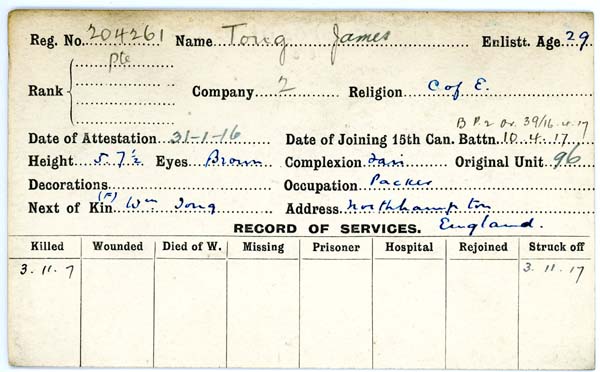 Reg. No. 204261 Name Tong James Enlistt. Age 29
Pte
Rank Company 2 Religion C of E.
B P. 2 Or. 39/16.4.17
Date of Attestation 31-1-16 Date of Joining 15th Can. Battn. 10.4.17
Height 5.7½ Eyes Brown Complexion Fair Original Unit 96
Decorations Occupation Packer
Next of Kin (F) Wm Tong Address Northhampton
RECORD OF SERVICES. England.
Killed Wounded Died of W. Missing Prisoner Hospital Rejoined Struck off
3.11.7 3.11.17